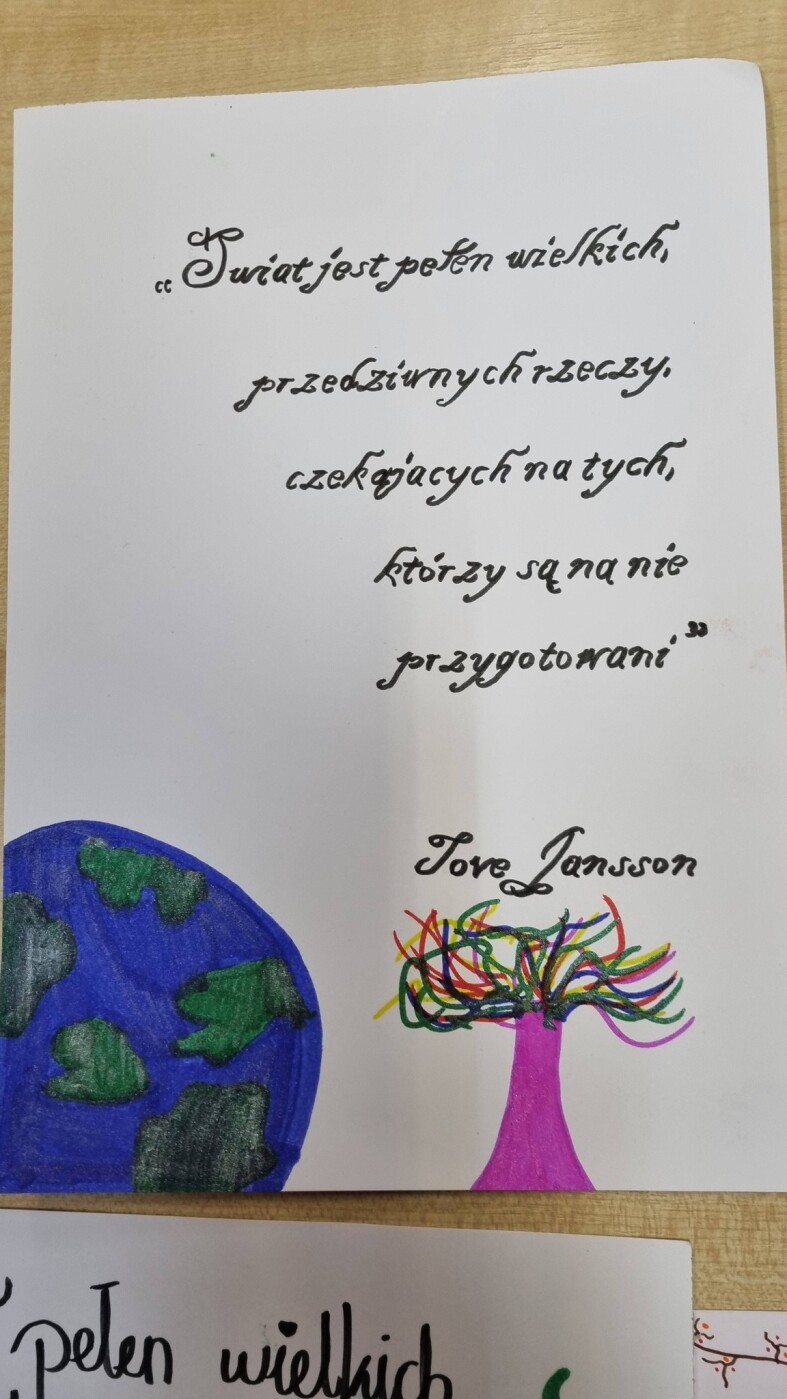 „Świat jest pełen wielkich,
przedziwnych rzeczy,
czekających na tych,
którzy są na nie
przygotowani”
Tove Jansson
pełen wielkich